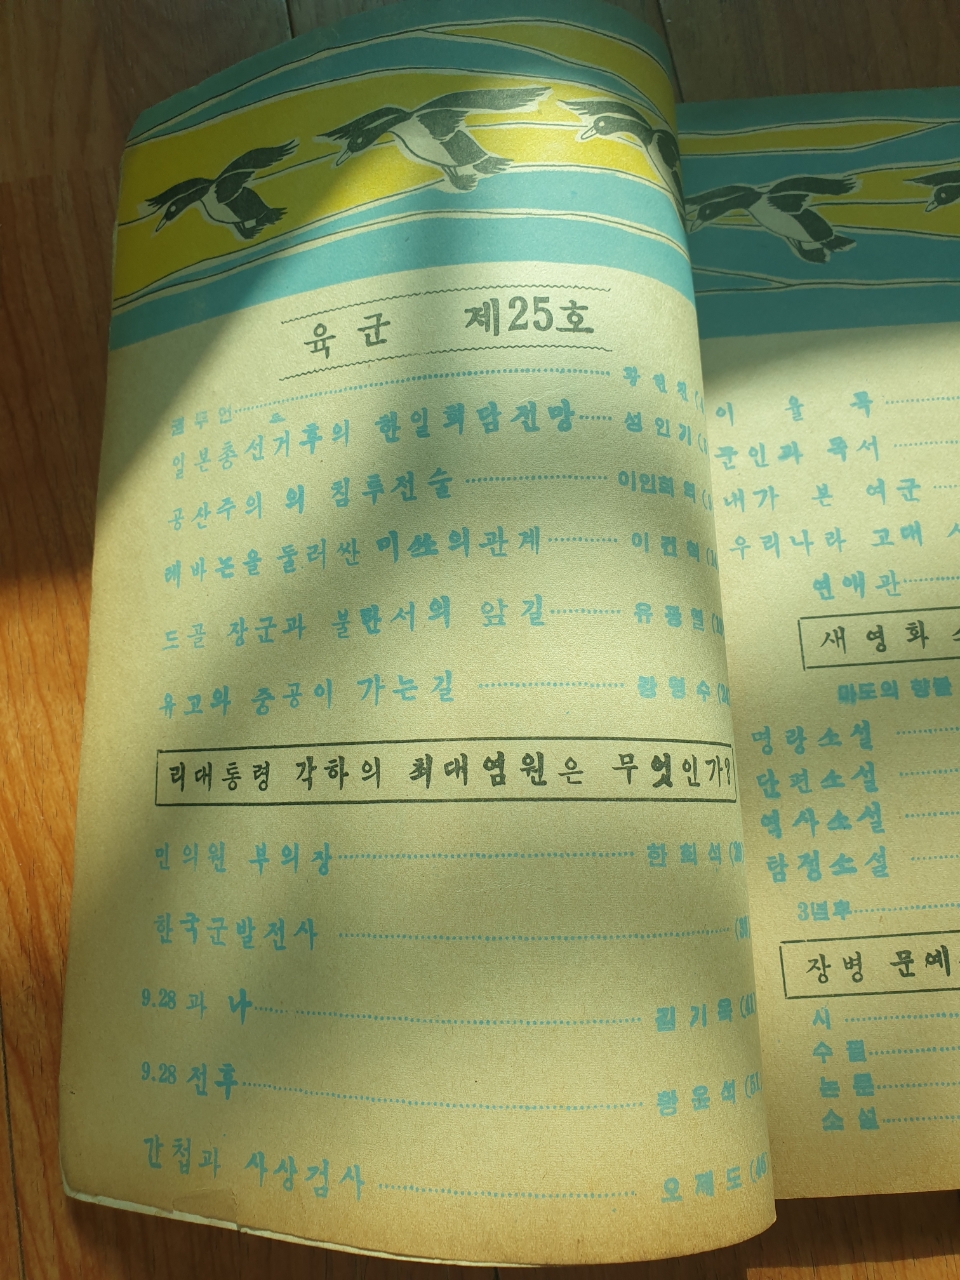 육군 제25호
권두언
일본총선거후의 한일회담전망 성인기
공산주의의 침투전술 이인희 역
레바논을 둘러싼 미쏘의관계
도골 장군과 불란서의 앞길
유고와 중공이 가는길 황형수
리대통령 각하의 최대염원은 무엇인가?
민의원 부의장 한희석
한국군발전사
9.28과 나 김기옥
9.28 전후 황윤석 (51
간첩과 사상검사 오제도
이율곡
군인과 독서
내가 본 여군
우리나라 고대
연애관
새영화
마도의 향불
명랑소설
단편소설
역사소설
탐정소설
3년후
장병 문예
시
수필
논문
소설